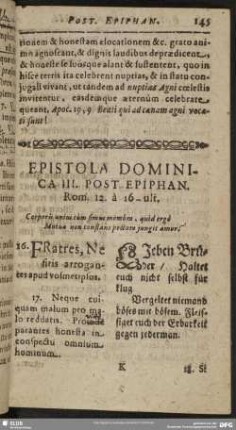 POST. EPIPHAN. 145
tionem & honestam elocationem &c. grato ani-
mo agnoscant, & dignis laudibus deprædicent,
& honeste se suosque alant & sustentent, quo in
hisce terris ita celebrent nuptias, & in statu con-
jugali vivant, ut tandem ad nuptias Agni cœlestis
invitentur, easdemque æternùm celebrare
queant. Apoc. 19, 9. Beati qui ad cœnam agni voca-
ti sunt!
EPISTOLA DOMINI-
CA III. POST EPIPHAN.
Rom. 12. à 16 - ult.
Corporis unius cùm simus membra, quid ergò
Mutua non constans pectora jungit amor?
16. FRatres, Ne
sitis arrogan-
tes apud vosmetipsos.
17. Neque cui-
quam malum pro ma-
lo reddatis. Providè
parantes honesta in
conspectu omnium
hominum.
Lieben Brü-
der / Haltet
euch nicht selbst für
klug
Vergeltet niemand
böses mit bösem. Fleis-
siget euch der Erbarkeit
gegen jederman.
K
18. Si